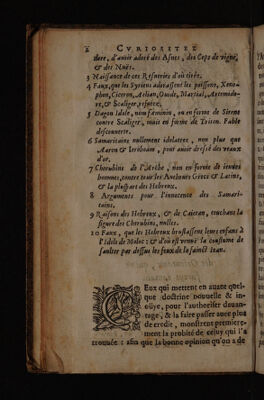 2 CVRIOSITEZ
tlere, d'auoir adoré des Asnes, des Ceps de vigne,
& des Nuës.
3 Naissance de ces Resueries d'où tirée.
4 Faux, que les Syriens adorassent les poissons, Xeno-
phon, Ciceron, Aelian, Ouide, Martial, Artemido-
re, & Scaliger, refutez.
5 Dagon Idole, non fœminin, ou en forme de Sirene
contre Scaliger, mais en forme de Triton. Fable
descouuerte.
6 Samaritains nullement idolatres, non plus que
Aaron & Ieroboam, pour auoir dressé des veaux
d'or.
7 Cherubins de l'Arche, non en forme de ieunes
hommes, contre tous les Autheurs Grecs & Latins,
& la pluspart des Hebreux.
8 Arguments pour l'innocence des Samari-
tains.
9 Raisons des Hebreux, & de Caietan, touchant la
figure des Cherubins, nulles.
10 Faux, que les Hebreux bruslassent leurs enfans à
l'Idole de Moloc: & d'où est venuë la coustume de
saulter par dessus les feux de la sainct Iean.
CEux qui mettent en auant quel-
que doctrine nouuelle & in-
oüye, pour l'authoriser dauan-
tage, & la faire passer auec plus
de credit, monstrent premiere-
ment la probité de celuy qui l'a
trouuée: afin que la bonne opinion qu'on a de